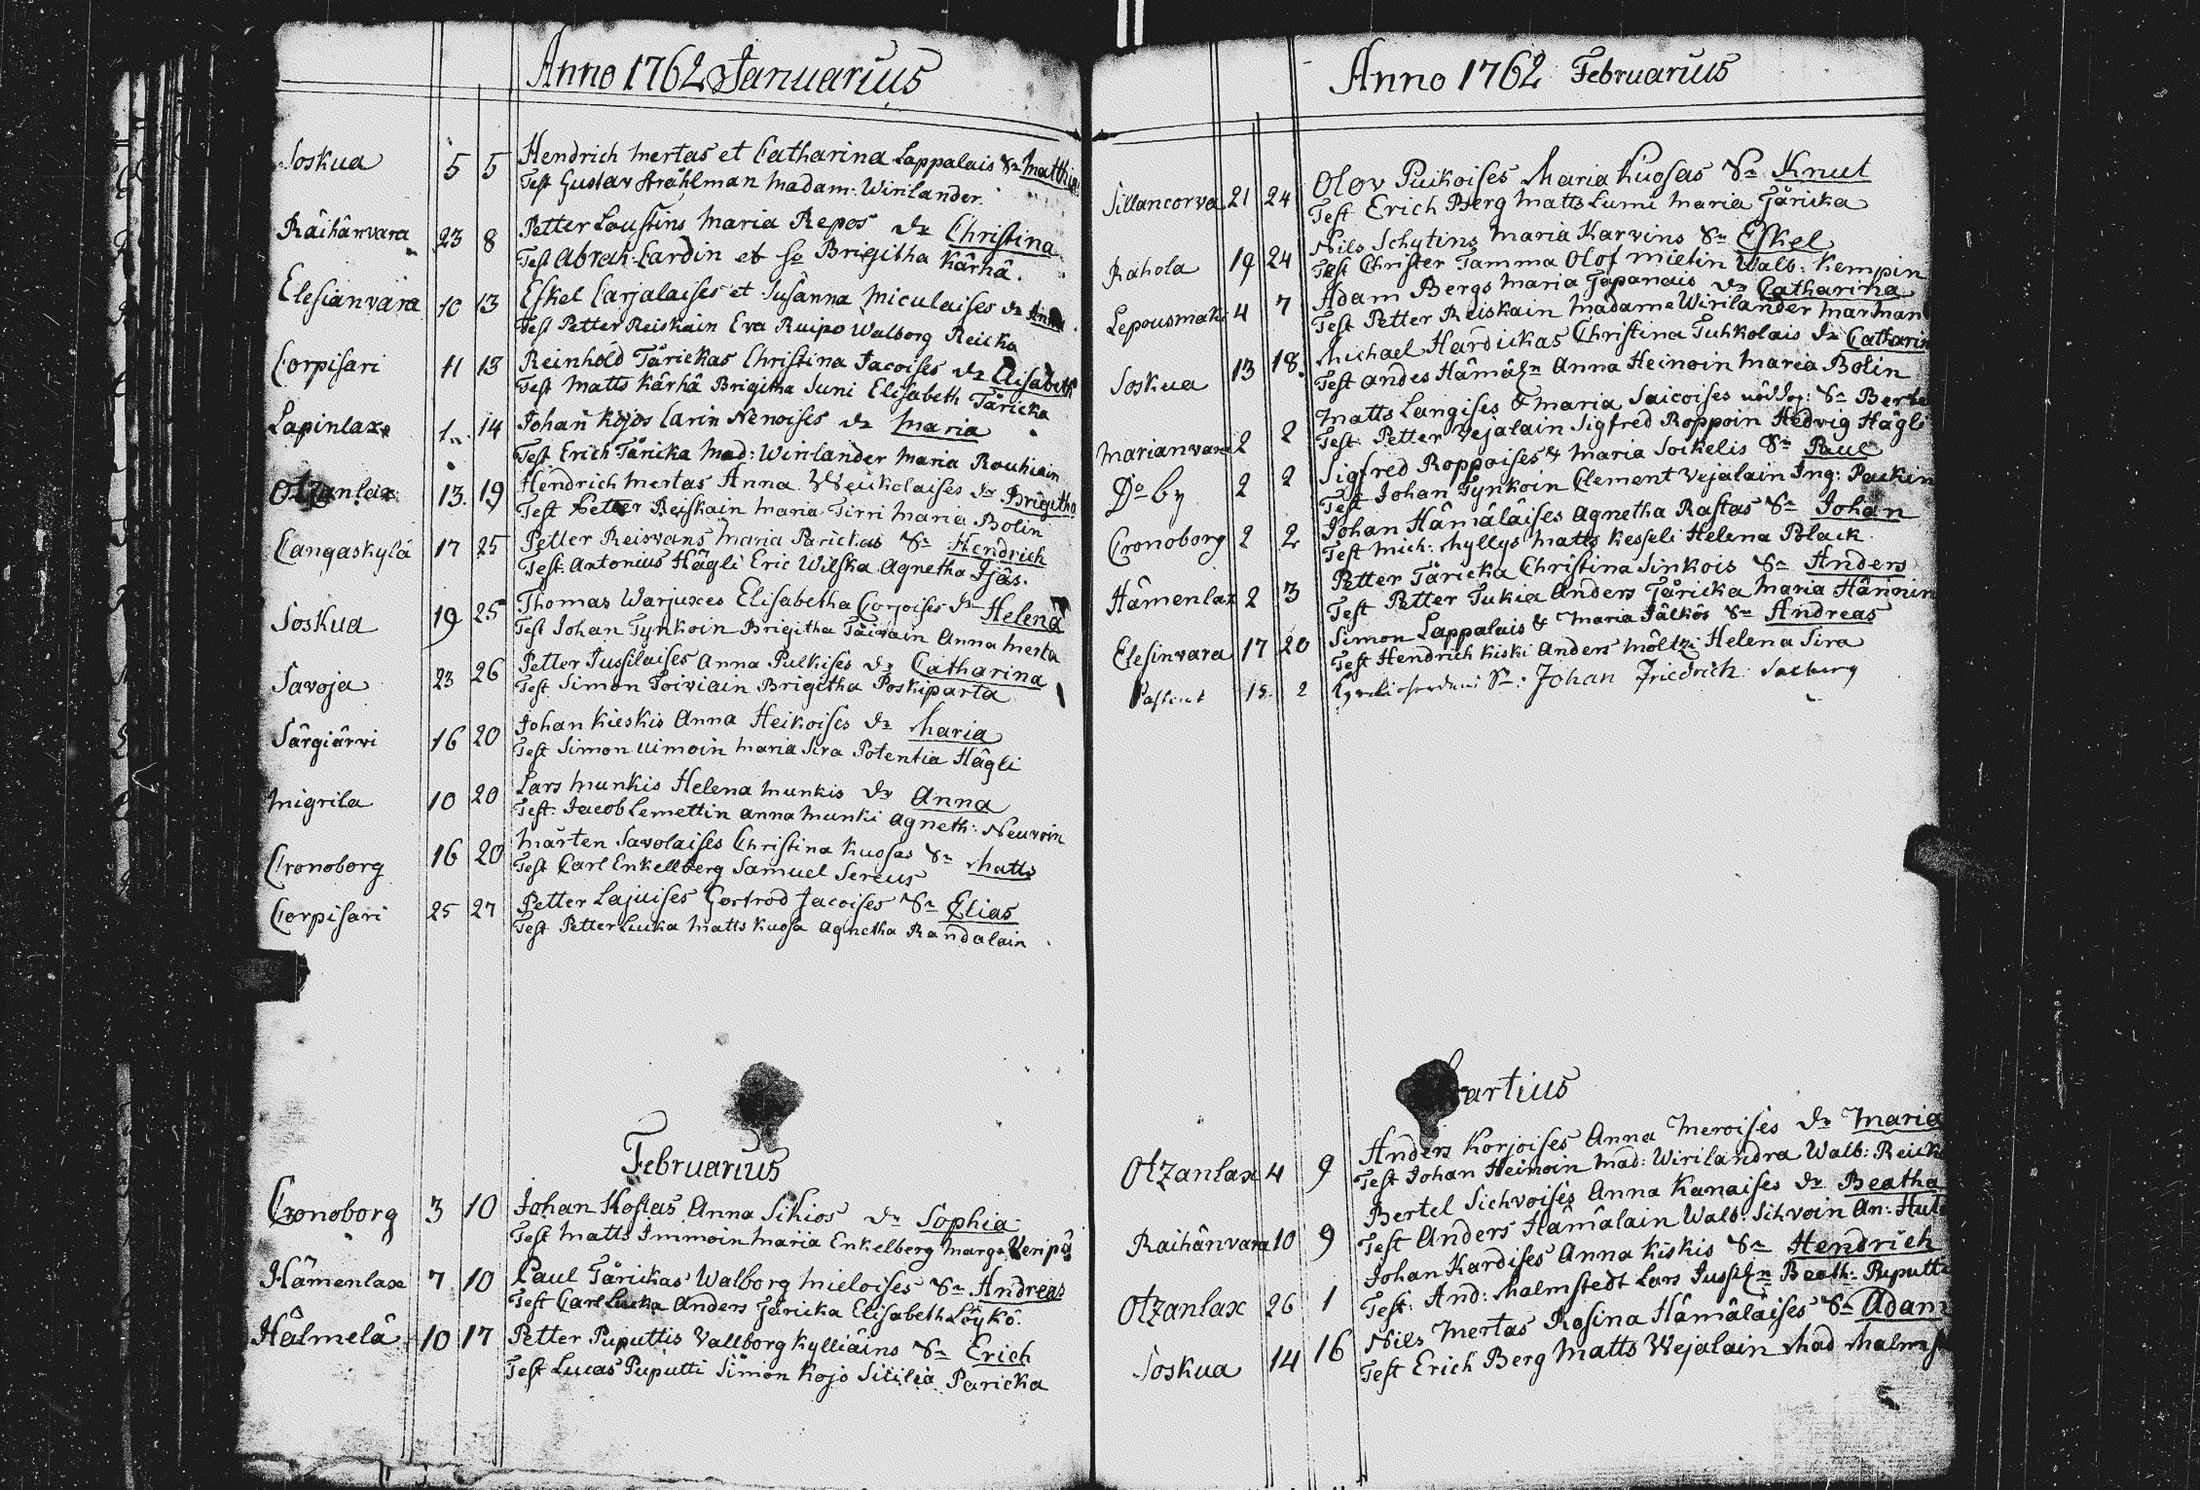 Anno 1762 Januarius
Joskua 5 5 Hendrich Mertas et Catharina Lappalais Sn Matthias
Test Gustav Stråhlman Madam: Wirilander.
Râihânvara 23 8 Petter Laustins Maria Repos dr Christina
Test Abrah: Cardin et Brigitha Kârhâ.
Elesiänvara 10 13 Eskel Carjalaises et Susanna Miculaises dr Anna
Test Petter Reiskain Eva Ruipo Walborg Reicka
Corpisari 11 13 Reinhold Tårickas Christina Jacoises dr Elisabeth
Test Matts Kârhâ Brigitha Suni Elisabeth Tåricka
Lapinlax 1 14 Johan Kojos Carin Nenoises dr Maria
Test Erich Tåricka Mad: Wirilander Maria Rouhiain
Otzanlax 13. 19 Hendrich Mertas Anna Weukolaises dr Brigitha
Test Petter Reiskain Maria Tirri Maria Bolin
Cangaskylâ 17 25 Petter Reisvans Maria Parickas Sn Hendrich
Test. Antonius Hâgli Eric Wilska Agnetha Ijâs.
Soskua 19 25 Thomas Warjuxes Elisabetha Corjoises dr Helena
Test Johan Tynkoin Brigitha Tåivain Anna Merta
Savoja 23 26 Petter Jussilaises Anna Pulkises dr Catharina
Test Simon Toiviain Brigitha Poskiparta
Sârgiârvi 16 20 Johan Kieskis Anna Heikoises dr Maria
Test Simon Uimoin Maria Sira Potentia Hâgli
Migrila 10 20 Lars Munkis Helena Munkis dr Anna
Test: Jacob Lemettin Anna Munki Agneth: Neuvoin
Cronoborg 16 20 Mårten Savolaises Christina Kuosas Sn Matts
Test Carl Enkellberg Samuel Sereus
Corpisari 25 27 Petter Lajuises Gertrod Jacoises Sn Elias
Test Petter Luuka Matts Kuosa Agnetha Randalain
Februarius
Cronoborg 3 10 Johan Kostas Anna Sikios dr Sophia
Test Matts Immoin Maria Enkelberg Marg: Veripâ
Hâmenlax 7 10 Paul Tårickas Walborg Mieloises Sn Andreas
Test Carl Anders Tåricka Elisabeth Löykö.
Hâlmelâ 10 17 Petter Puputtis Vallborg Kylliâins Sn Erich
Test Lucas Puputti Simon Kojo Sicilia Paricka
Anno 1762 Februarius
Sillancorva 21 24 Olov Puikoises Maria Kuosas Sn Knut
Test Erich Berg Matts Lumi Maria Tåricka
Rahola 19 24 Nils Schytins Maria Karvins Sn Eskel
Test Christer Tamma Olof Mielin Walb: Kempin
Lepousmaki 4 7 Adam Bergs Maria Tapanais dr Catharina
Test Petter Reiskain Madame Wirilander
Soskua 13 18. Michael Hårdickas Christina Tuhkolais dr Catharin
Test Andes Hâmâln Anna Heinoin Maria Bolin
Marianvara 2 2 Matts Langises & Maria Saicoises Sn Bertel
Test. Petter Vejalain Sigfred Roppoin Hedvig Hâgli
Do by 2 2 Sigfred Roppoises & Maria Soikelis Sn Paul
Test Johan Tynkoin Clement Vejalain Ing: Paukin
Cronoborg 2 2 Johan Hâmâlâises Agnetha Rastas Sn Johan
Test Mich: Myllys Matts Kesseli Helena Polack.
Hâmenlax 2 3 Petter Tåricka Christina Sinkois Sn Anders
Test Petter Tukia Anders Tåricka Maria Hânnin
Elesinvara 17 20 Simon Lappalais & Maria Jâlkös Sn Andreas
Test Hendrich Kiski Anders Möltzi Helena Sira
15. 2 Sn: Johan Friedrich
Martius
Otzanlax 4 9 Anders Korjoises Anna Meroises dr Maria
Test Johan Heinoin Mad: Wirilandra Walb: Reick
Raihânvara 10 9 Bertel Sichvoises Anna Kanaises dr Beatha
Test Anders Hâmâlain Walb: Sihvoin An:
Otzanlax 26 1 Johan Kardises Anna Kiskis Sn Hendrich
Test: And: Malmstedt Lars Jussiln Beath: Puputti
Soskua 14 16 Nils Mertas Rosina Hâmâlâises Sn Adam
Test Erich Berg Matts Wejalain Mad Malmst